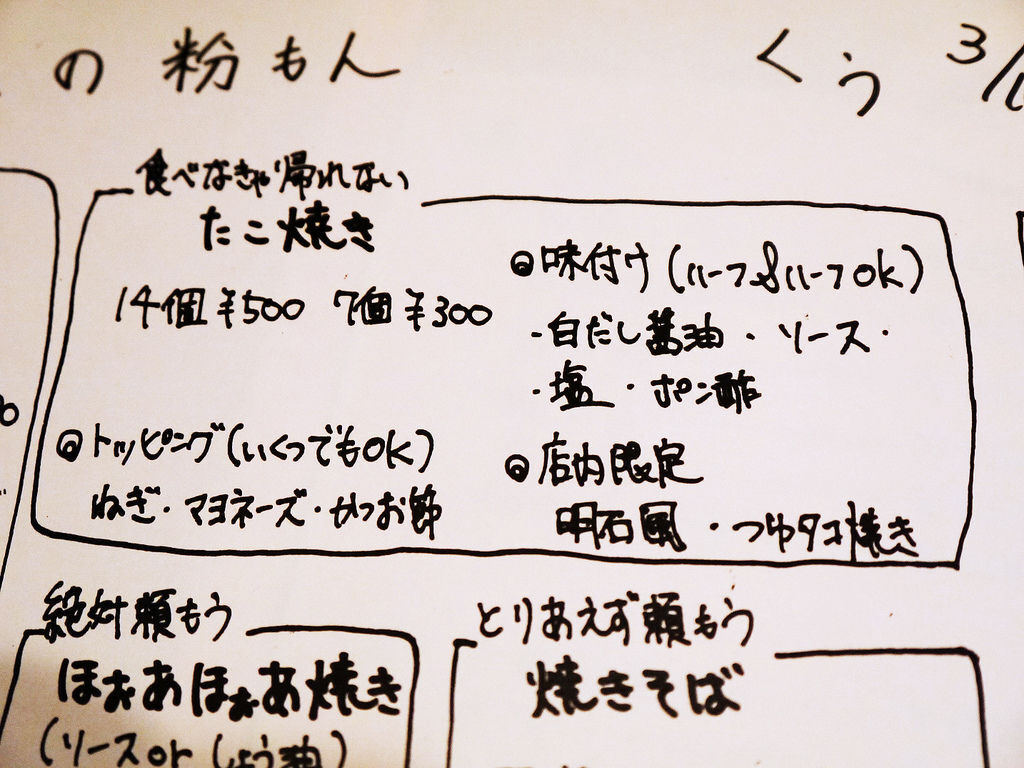 の粉もん
くう 3/1
食べなきゃ帰れない
たこ焼き
14個¥500 7個¥300
◎トッピング(いくつでもOK)
ねぎ・マヨネーズ・かつお節
◎味付け(ハーフ&ハーフOK)
・白だし醤油・ソース・
・塩・ポン酢
◎店内限定
明石風・つゆタコ焼き
絶対頼もう
ほぉあほぉあ焼き
(ソースorしょう油)
とりあえず頼もう
焼きそば